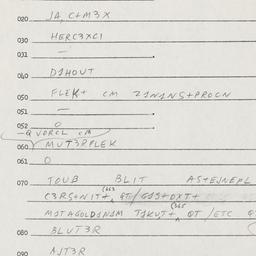 020 JA, C+M3X
030 HERC3XCI
031 —
040 D1HOUT
050 FLEK+ CM Z1N1NS+PROCN
051 —
052 O
—QVORCL CM
060 MUT3RFLEK
061 O
070 TOUB BLIT AS+EJNEPL
C3RS+NIT+, QT/G1S+OXT+
M3TAGOLD1N1M T1KUT+, QT /ETC
080 BLUT3R
090 AJT3R